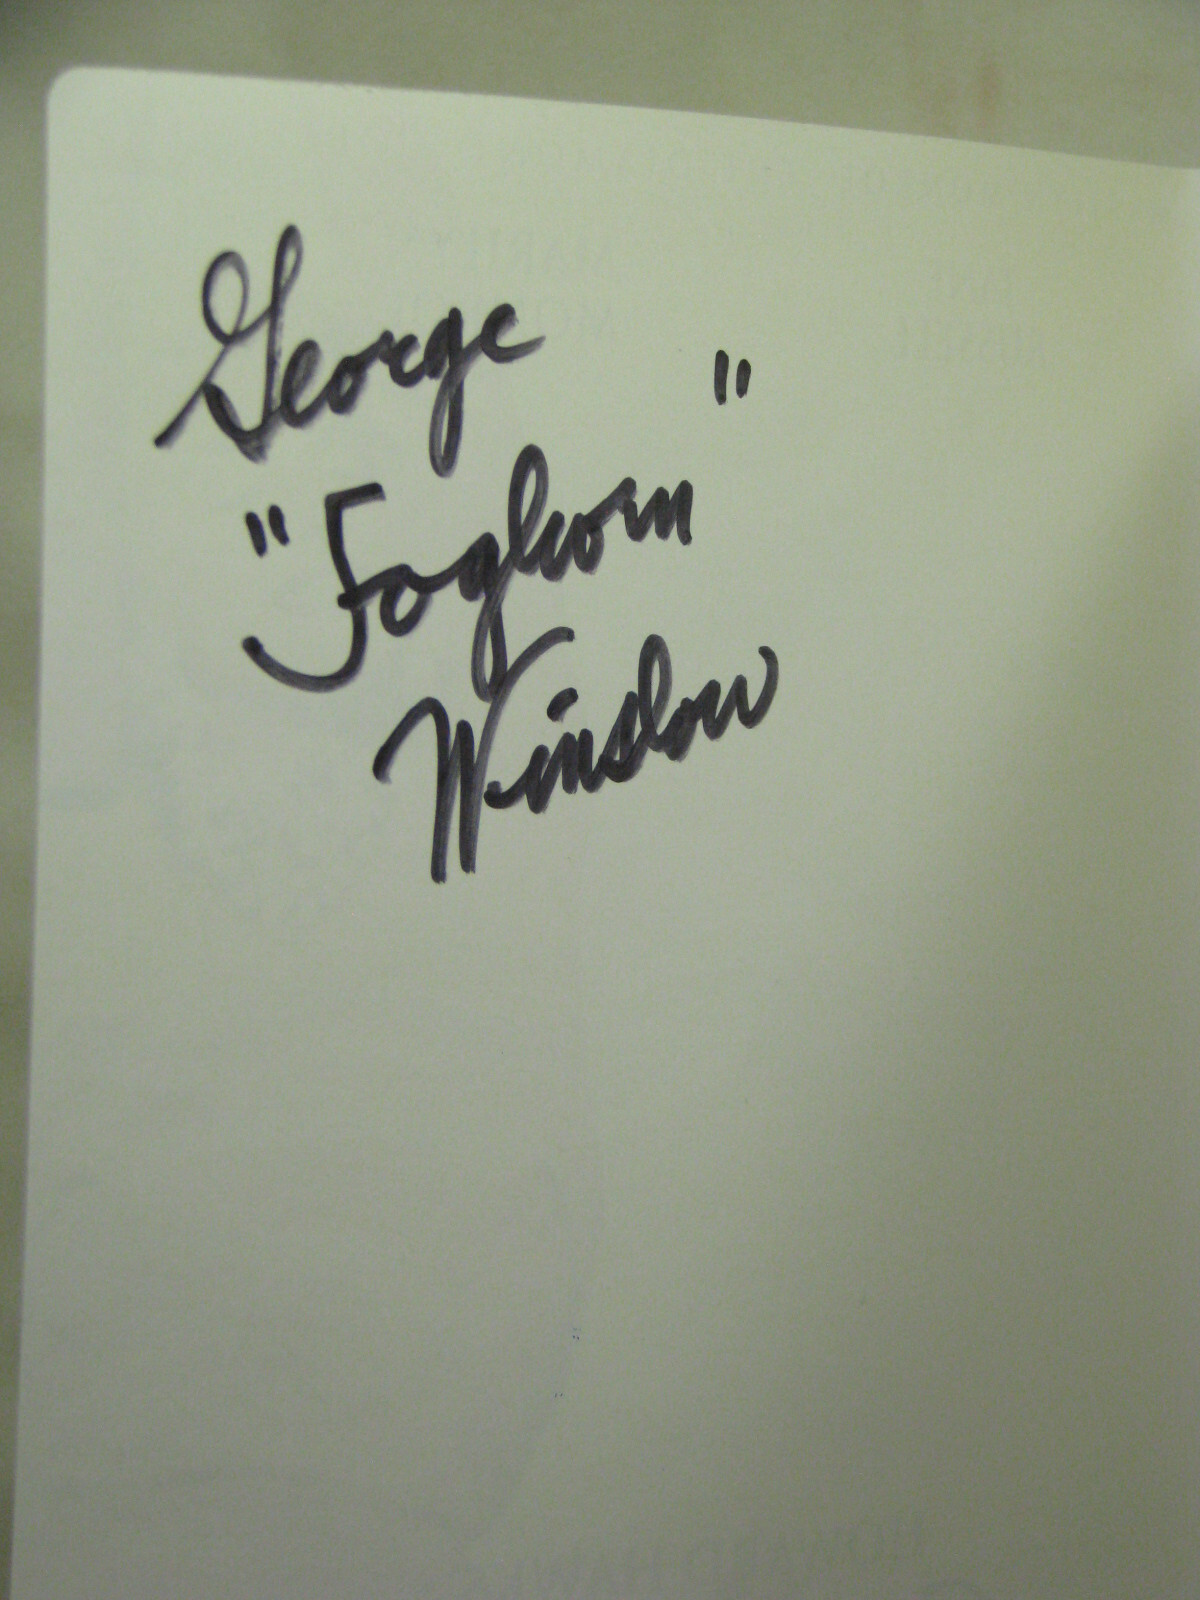 George
"Foghorn"
Winslow